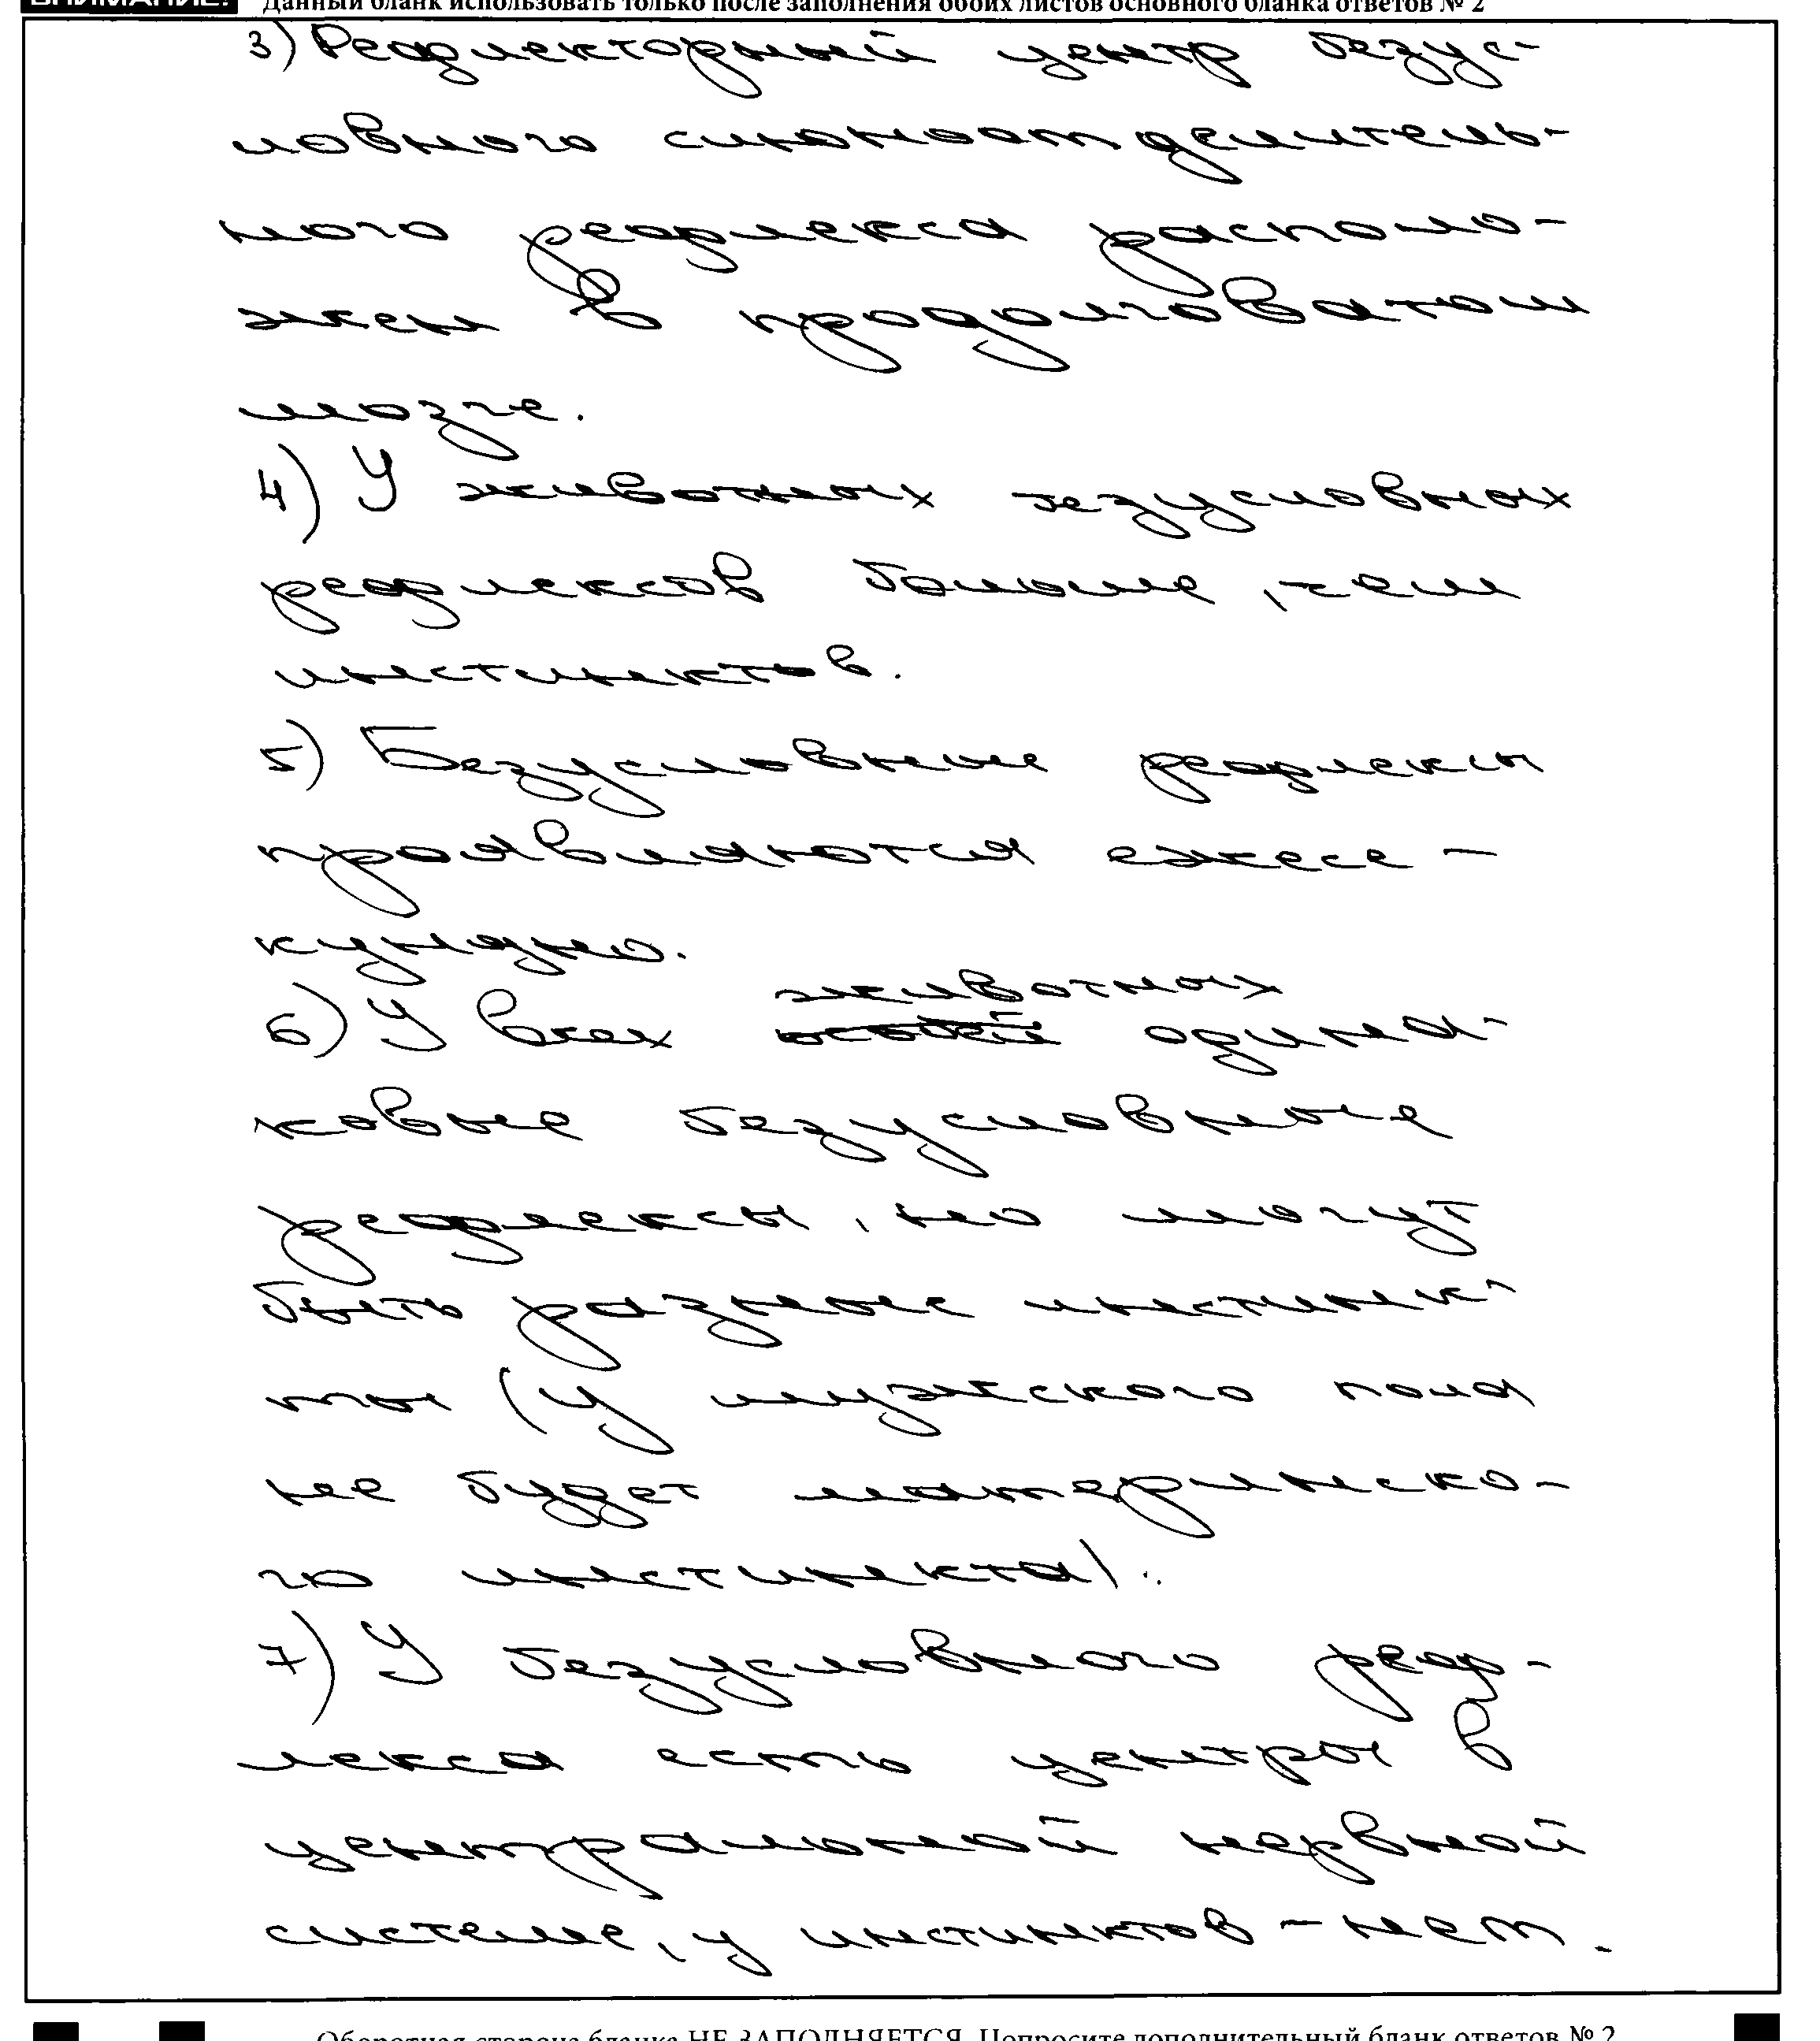 ВНИМАНИЕ! Данный бланк использовать только после заполнения обоих листов основного бланка ответов № 2
3) Рефлекторный центр безус-
ловного слюноотделитель-
ного рефлекса располо-
жен в продолговатом
мозге.
4) У животных безусловных
рефлексов больше, чем
инстинктов.
5) Безусловные рефлексы
проявляются ежесе-
кундно.
животных
6) У всех особей одина-
ковые безусловные
рефлексы, но могут
быть разные инстинк-
ты (у мужского пола
не будет материнско-
го инстинкта).
7) У безусловного реф-
лекса есть центры в
центральной нервной
системе, у инстинктов - нет.
Оборотная сторона бланка НЕ ЗАПОЛНЯЕТСЯ. Попросите дополнительный бланк ответов № 2